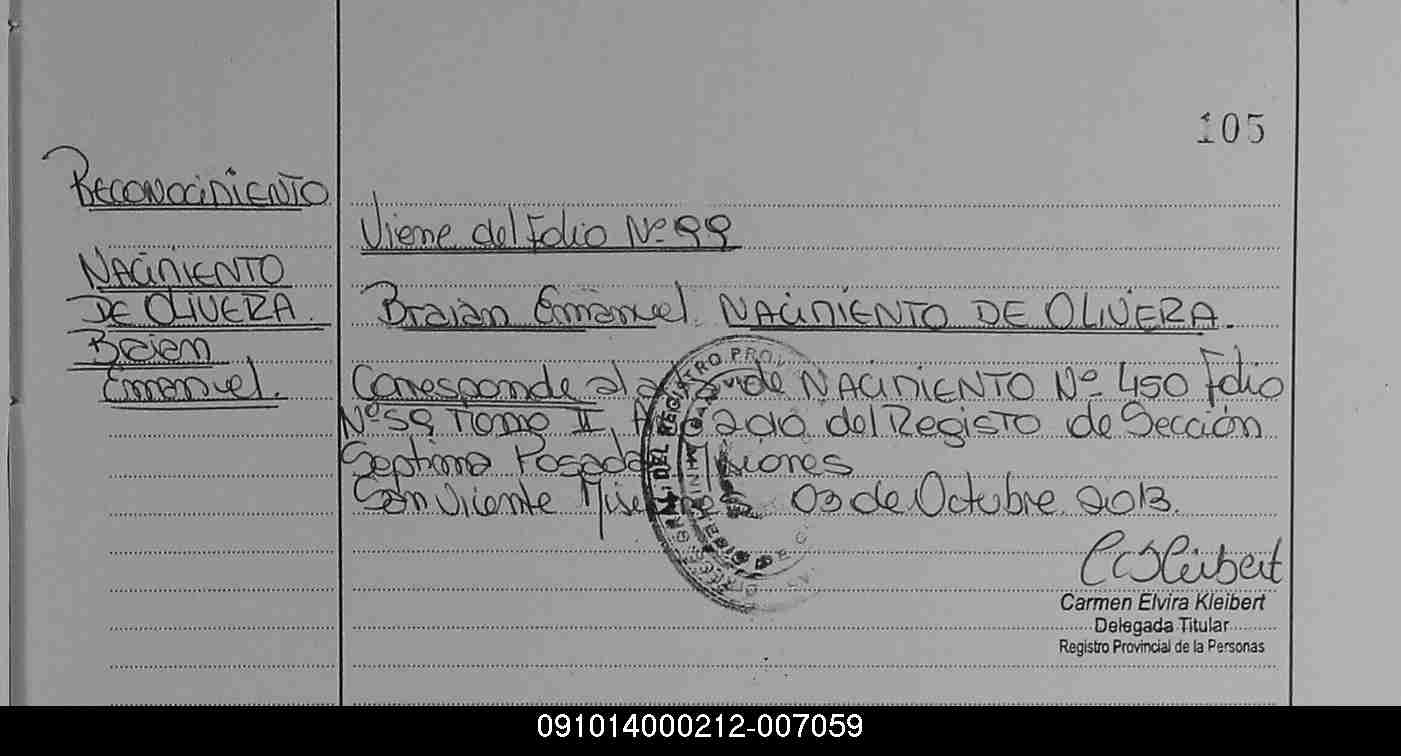 105
RECONOCIMIENTO
Viene del Folio Nº 99
NACIMIENTO
DE OLIVERA.
Braian
Emanuel.
Braian Emanuel. NACIMIENTO DE OLIVERA.
Corresponde al de NACIMIENTO Nº 450 Folio
Nº 59 Tomo II, 2010 del Registo de Sección
Septima Posadas Misiones
San Vicente Misiones 03 de Octubre 2013.
CKleibert
Carmen Elvira Kleibert
Delegada Titular
Registro Provincial de la Personas
DEL REGISTRO PRO
091014000212-007059